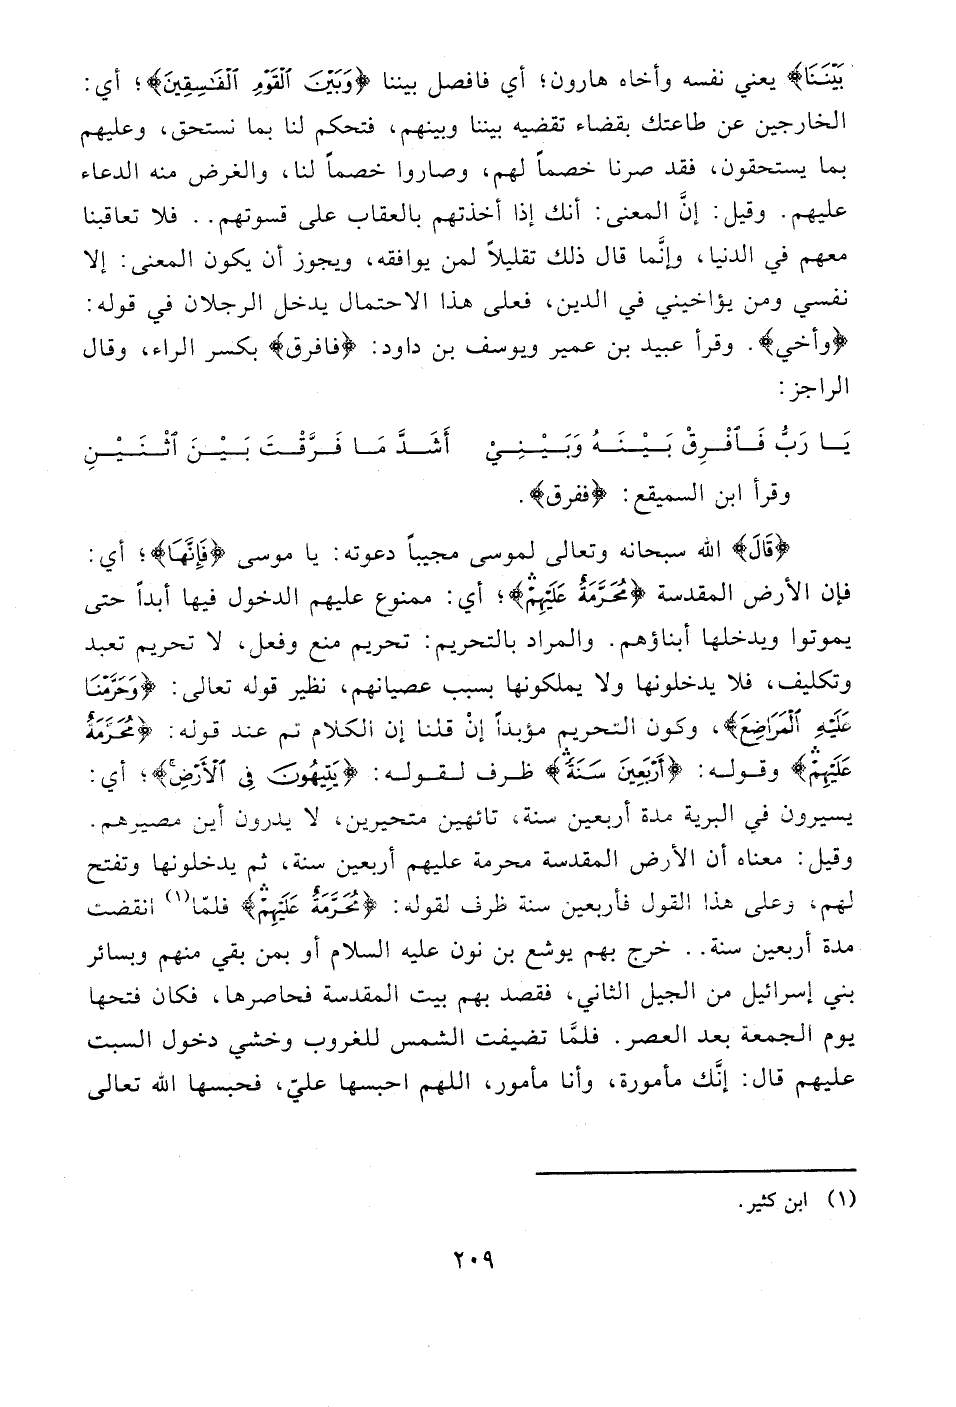 بَيْنَنَا﴾ يعني نفسه وأخاه هارون؛ أي فافصل بيننا ﴿وَبَيْنَ ٱلْقَوْمِ ٱلْفَٰسِقِينَ﴾؛ أي:
الخارجين عن طاعتك بقضاء تقضيه بيننا وبينهم، فتحكم لنا بما نستحق، وعليهم
بما يستحقون، فقد صرنا خصماً لهم، وصاروا خصماً لنا، والغرض منه الدعاء
عليهم. وقيل: إنَّ المعنى: أنك إذا أخذتهم بالعقاب على قسوتهم.. فلا تعاقبنا
معهم في الدنيا، وإنَّما قال ذلك تقليلاً لمن يوافقه، ويجوز أن يكون المعنى: إلا
نفسي ومن يؤاخيني في الدين، فعلى هذا الاحتمال يدخل الرجلان في قوله:
﴿وأخي﴾. وقرأ عبيد بن عمير ويوسف بن داود: ﴿فافرق﴾ بكسر الراء، وقال
الراجز:
يَا رَبُّ فَٱفْرِقْ بَيْنَهُ وَبَيْنِيْ أَشَدَّ مَا فَرَّقْتَ بَيْنَ ٱثْنَيْنِ
وقرأ ابن السميقع: ﴿ففرق﴾.
﴿قَالَ﴾ الله سبحانه وتعالى لموسى مجيباً دعوته: يا موسى ﴿فَإِنَّهَا﴾؛ أي:
فإن الأرض المقدسة ﴿مُحَرَّمَةٌ عَلَيْهِمْۛ﴾؛ أي: ممنوع عليهم الدخول فيها أبداً حتى
يموتوا ويدخلها أبناؤهم. والمراد بالتحريم: تحريم منع وفعل، لا تحريم تعبد
وتكليف، فلا يدخلونها ولا يملكونها بسبب عصيانهم، نظير قوله تعالى: ﴿وَحَرَّمْنَا
عَلَيْهِ ٱلْمَرَاضِعَ﴾، وكون التحريم مؤبداً إنْ قلنا إن الكلام تم عند قوله: ﴿مُحَرَّمَةٌ
عَلَيْهِمْۛ﴾ وقوله: ﴿أَرْبَعِينَ سَنَةًۛ﴾ ظرف لقوله: ﴿يَتِيهُونَ فِى ٱلْأَرْضِۚ﴾؛ أي:
يسيرون في البرية مدة أربعين سنة، تائهين متحيرين، لا يدرون أين مصيرهم.
وقيل: معناه أن الأرض المقدسة محرمة عليهم أربعين سنة، ثم يدخلونها وتفتح
لهم، وعلى هذا القول فأربعين سنة ظرف لقوله: ﴿مُحَرَّمَةٌ عَلَيْهِمْۛ﴾ فلمّا(١) انقضت
مدة أربعين سنة.. خرج بهم يوشع بن نون عليه السلام أو بمن بقي منهم وبسائر
بني إسرائيل من الجيل الثاني، فقصد بهم بيت المقدسة فحاصرها، فكان فتحها
يوم الجمعة بعد العصر. فلمَّا تضيفت الشمس للغروب وخشي دخول السبت
عليهم قال: إنَّك مأمورة، وأنا مأمور، اللهم احبسها عليّ، فحبسها الله تعالى
(١) ابن كثير.
٢٠٩